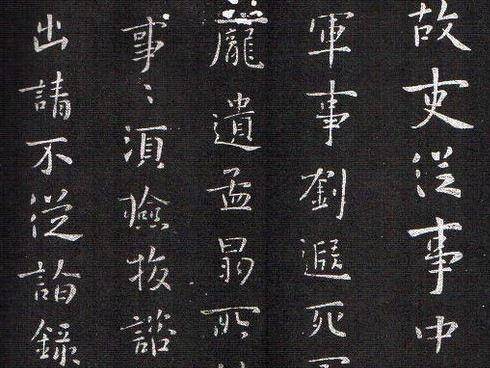 故吏從事中
軍事劉遐死
龐遺孟所
事〻湏諮
出請不從詣錄